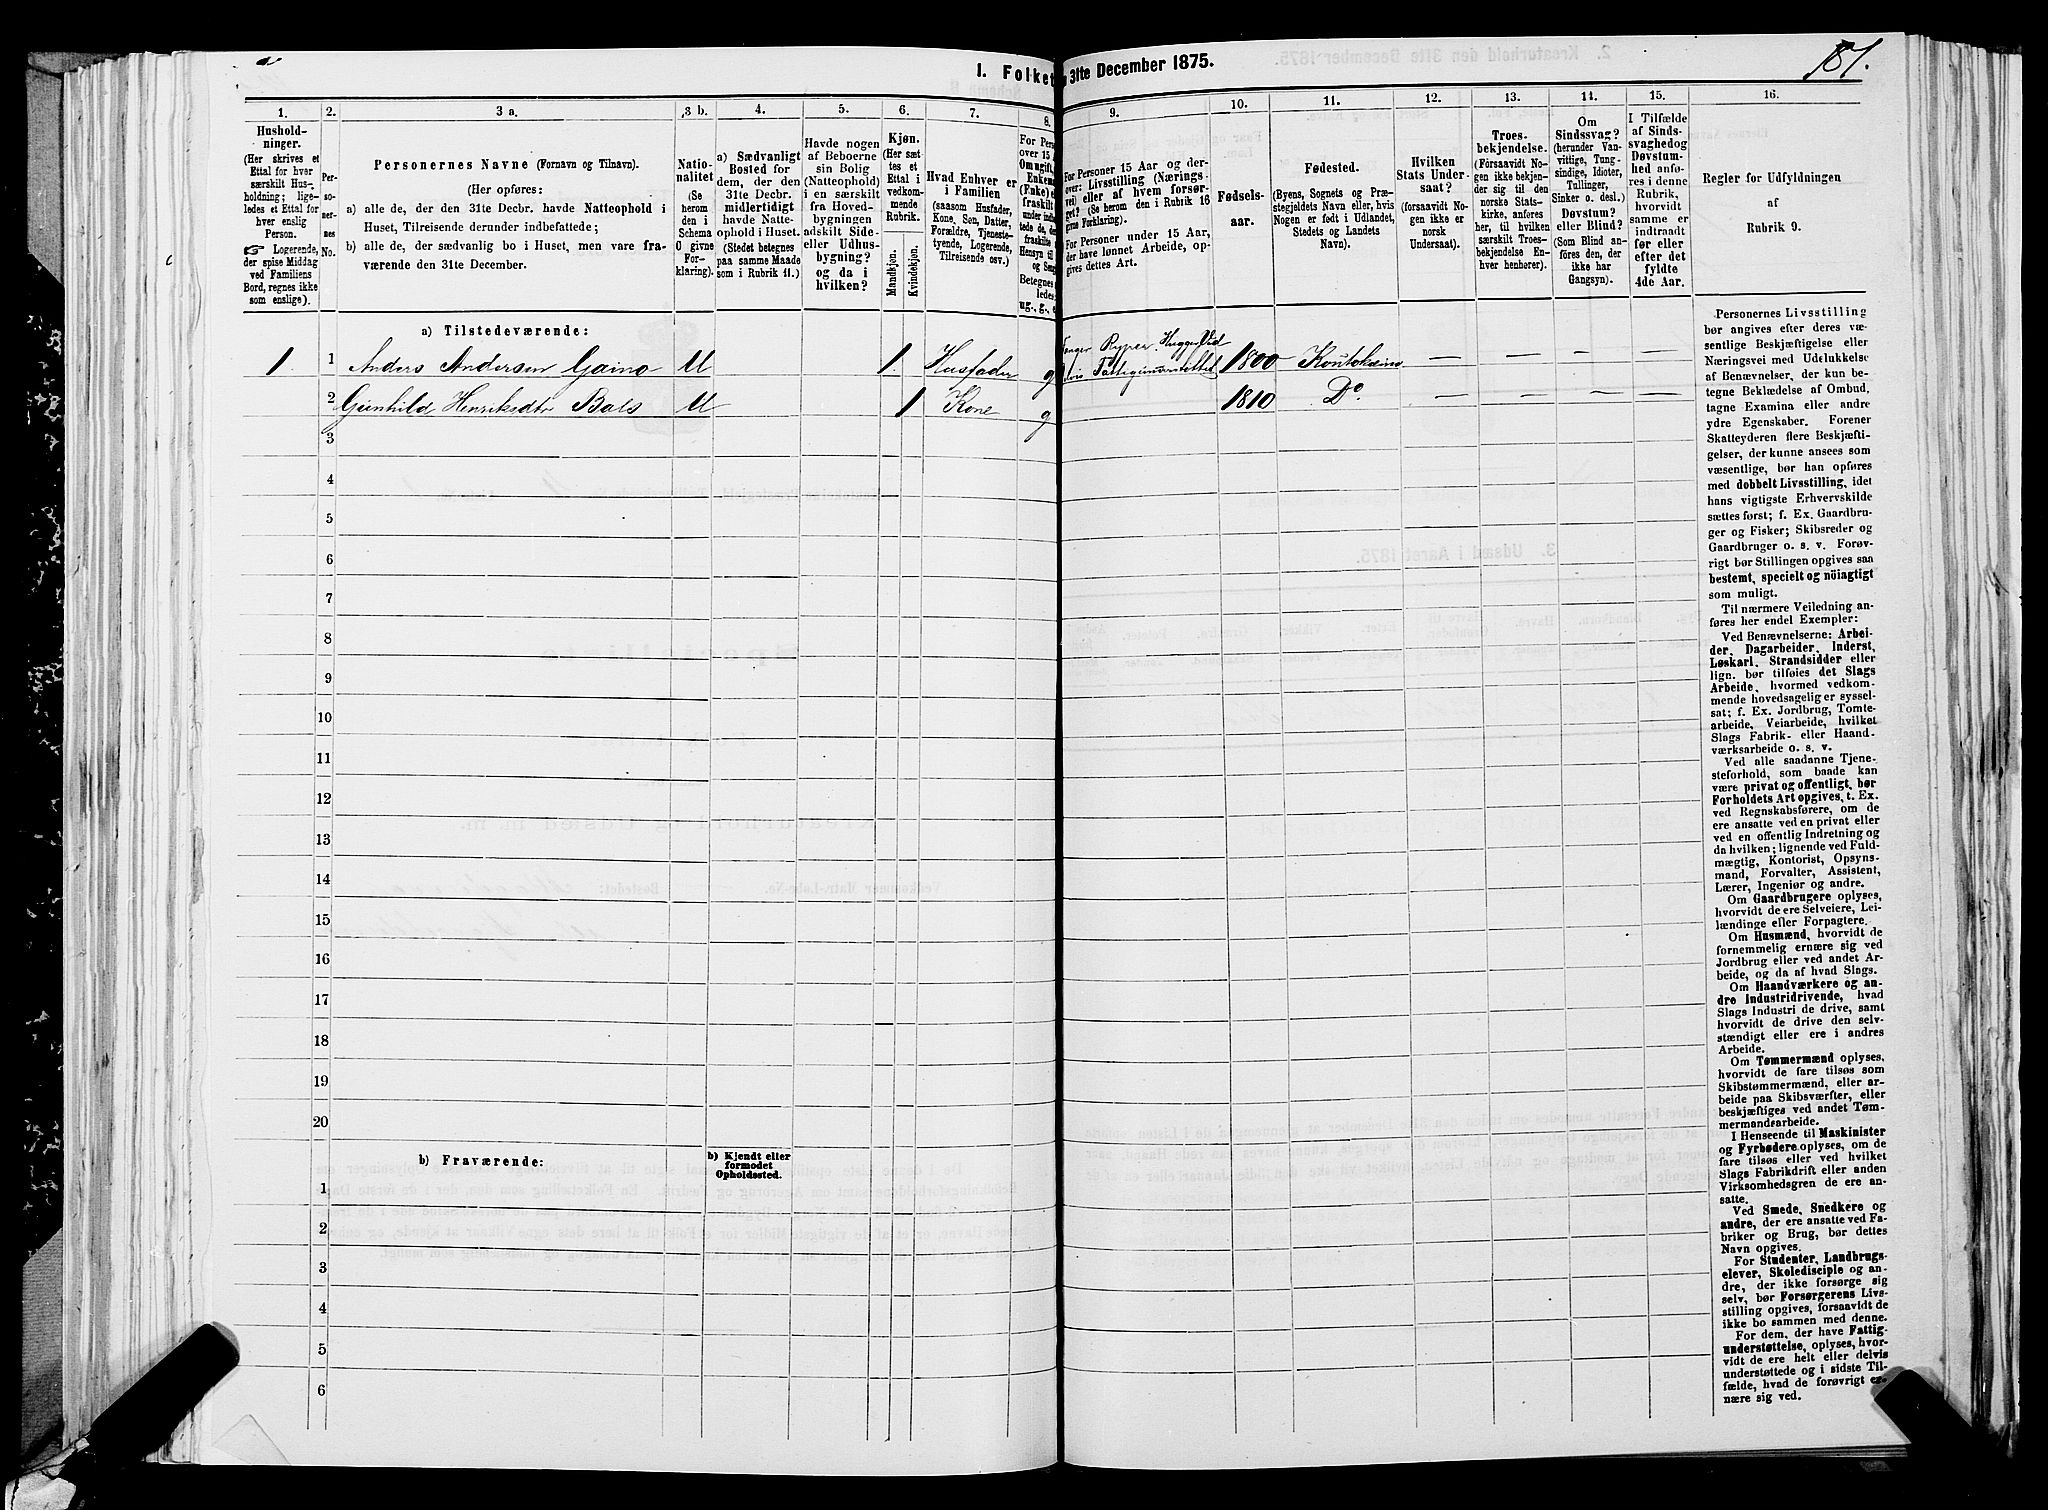 I. Folket
31te December 1875.
181.
1.
2.
3 a.
3 b.
4.
5.
6.
7.
8.
9.
10.
11.
12.
13.
14.
15.
16.
Hushold-
ninger.
(Her skrives et
Ettal for hver
særskilt Hus-
holdning; lige-
ledes et Ettal for
hver enslig
Person.
☞ Logerende,
der spise Middag
ved Familiens
Bord, regnes ikke
som enslige).
Per-
so-
ner-
nes
No.
Personernes Navne (Fornavn og Tilnavn).
(Her opføres:
a) alle de, der den 31te Decbr. havde Natteophold i
Huset, Tilreisende derunder indbefattede;
b) alle de, der sædvanlig bo i Huset, men vare fra-
værende den 31te December.
Natio-
nalitet
(Se
herom
den i
Schema
O givne
For-
klaring).
a) Sædvanligt
Bosted for
dem, der den
31te Decbr.
midlertidigt
havde Natte-
ophold i Huset.
(Stedet betegnes
paa samme Maade
som i Rubrik 11.)
Havde nogen
af Beboerne
sin Bolig
(Natteophold)
i en særskilt
fra Hoved-
bygningen
adskilt Side-
eller Udhus-
bygning?
og da i
hvilken?
Kjøn.
(Her sæt-
tes et
Ettal i
vedkom-
mende
Rubrik.
Mandkjøn.
Kvindekjøn.
Hvad Enhver er
i Familien
(saasom Husfader,
Kone, Søn, Datter,
Forældre, Tjeneste-
tyende, Logerende,
Tilreisende osv.)
For Pers
over 15 A
Omugift,
Enkema
(Enke) e
fraskilt
under indbe
tede de,
fraskilte
Hensyn til
og Seng
Betegnes
ledes:
ug., g., e
For Personer 15 Aar og der-
over: Livsstilling (Nærings-
vei) eller af hvem forsør-
get? (Se herom i Rubrik 16
givne Forklaring).
For Personer under 15 Aar,
der have lønnet Arbeide, op-
gives dettes Art.
Fødsels-
aar.
Fødested.
(Byens, Sognets og Præ-
stegjeldets Navn eller, hvis
Nogen er født i Udlandet,
Stedets og Landets
Navn).
Hvilken
Stats Under-
saat?
(forsaavidt No-
gen ikke er
norsk
Undersaat).
Troes-
bekjendelse.
(Forsaavidt No-
gen ikke bekjen-
der sig til den
norske Stats-
kirke, anføres
her, til hvilken
særskilt Troes-
bekjendelse En-
hver henhører).
Om
Sindssvag?
(herunder Van-
vittige, Tung-
sindige, Idioter,
Tullinger,
Sinker o. desl.)
Døvstum?
eller Blind?
(Som Blind an-
føres den, der
ikke har
Gangsyn).
I Tilfælde
af Sinds-
svaghed og
Døvstum-
hed anfø-
res i denne
Rubrik,
hvorvidt
samme er
indtraadt
før eller
efter det
fyldte
4de Aar.
Regler for Udfyldningen
af
Rubrik 9.
a) Tilstedeværende:
1 1 Anders Andersen Gaino M 1. Husfader g Ryper. 1800 Koutokæino — — — —
2 Gunhild Henriksdtr Bals M 1 Kone g 1810 Do. — — — —
3
4
5
6
7
8
9
10
11
12
13
14
15
16
17
18
19
20
b) Fraværende:
b) Kjendt eller
formodet
Opholdssted.
1
2
3
4
5
6
Personernes Livsstilling
bør angives efter deres væ-
sentlige Beskjæftigelse eller
Næringsvei med Udelukkelse
af Benævnelser, der kun be-
tegne Beklædelse af Ombud,
tagne Examina eller andre
ydre Egenskaber. Forener
Skatteyderen flere Beskjæfti-
gelser, der kunne ansees som
væsentlige, bør han opføres
med dobbelt Livsstilling, idet
hans vigtigste Erhvervskilde
sættes først; f. Ex. Gaardbru-
ger og Fisker; Skibsreder og
Gaardbruger o. s. v. Forøv-
rigt bør Stillingen opgives saa
bestemt, specielt og nöiagtigt
som muligt.
Til nærmere Veiledning an-
føres her endel Exempler:
Ved Benævnelserne: Arbei-
der, Dagarbeider, Inderst,
Løskarl, Strandsidder eller
lign. bør tilføies det Slags
Arbeide, hvormed vedkom-
mende hovedsagelig er syssel-
sat; f. Ex. Jordbrug, Tomte-
arbeide, Veiarbeide, hvilket
Slags Fabrik- eller Haand-
værksarbeide o. s. v.
Ved alle saadanne Tjene-
steforhold, som baade kan
være privat og offentligt, bør
Forholdets Art opgives, t. Ex.
ved Regnskabsførere, om de
ere ansatte ved en privat eller
ved en offentlig Indretning og
da hvilken; lignende ved Fuld-
mægtig, Kontorist, Opsyns-
mand, Forvalter, Assistent,
Lærer, Ingeniør og andre.
Om Gaardbrugere oplyses,
hvorvidt de ere Selveiere, Lei-
lændinge eller Forpagtere.
Om Husmænd, hvorvidt de
fornemmelig ernære sig ved
Jordbrug eller ved andet Ar-
beide, og da af hvad Slags.
Om Haandværkere og an-
dre Industridrivende, hvad
Slags Industri de drive, samt
hvorvidt de drive den selv-
stændigt eller ere i andres
Arbeide.
Om Tømmermænd oplyses,
hvorvidt de fare tilsøs som
Skibstømmermænd, eller ar-
beide paa Skibsværfter, eller
beskjæftiges ved andet Tøm-
mermandsarbeide.
I Henseende til Maskinister
og Fyrbødere oplyses, om de
fare tilsøs eller ved hvilket
Slags Fabrikdrift eller anden
Virksomhedsgren de ere an-
satte.
Ved Smede, Snedkere og
andre, der ere ansatte ved Fa-
briker og Brug, bør dettes
Navn opgives.
For Studenter, Landbrugs-
elever, Skoledisciple og an-
dre, der ikke forsørge sig
selv, bør Forsørgerens Livs-
stilling opgives, forsaavidt de
ikke bo sammen med denne.
For dem, der have Fattig-
understøttelse, oplyses, hvor-
vidt de ere helt eller delvis
understøttede og i sidste Til-
fælde, hvad de forøvrigt er-
nære sig ved.